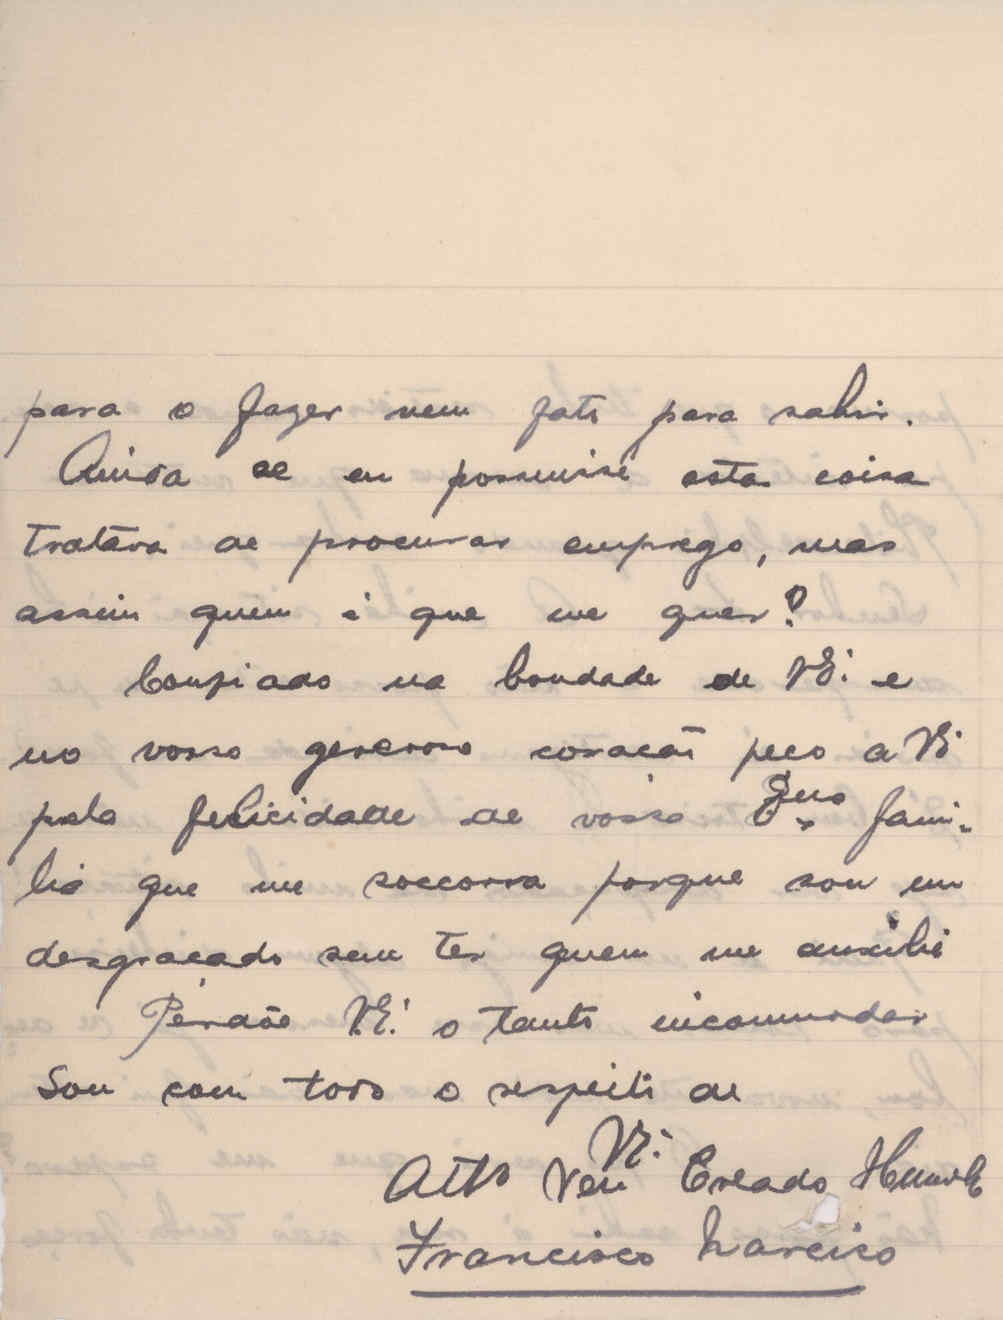 para o fazer nem fato para sahir.
Ainda se eu possuisse esta coisa
tratava de procurar emprego, mas
assim quem é que me quer?
Confiado na bondade de V.E. e
no vosso generoso coração peço a V.E.
pela felicidade de vossa Exma fami-
lia que me soccorra porque sou um
desgraçado sem ter quem me auxilie
Perdõe V.E. o tanto incommodar
Sou com todo o respeito de
V.E.
Atto Ven Creado Humilde
Francisco Narciso